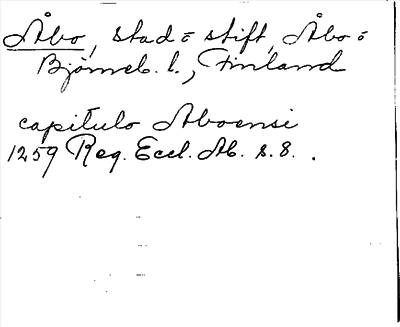 Åbo, stad o stift, Åbo o
Björneb. l., Finland
capitulo Aboensi
1259 Reg. Eccl. Ab. s. 8. .